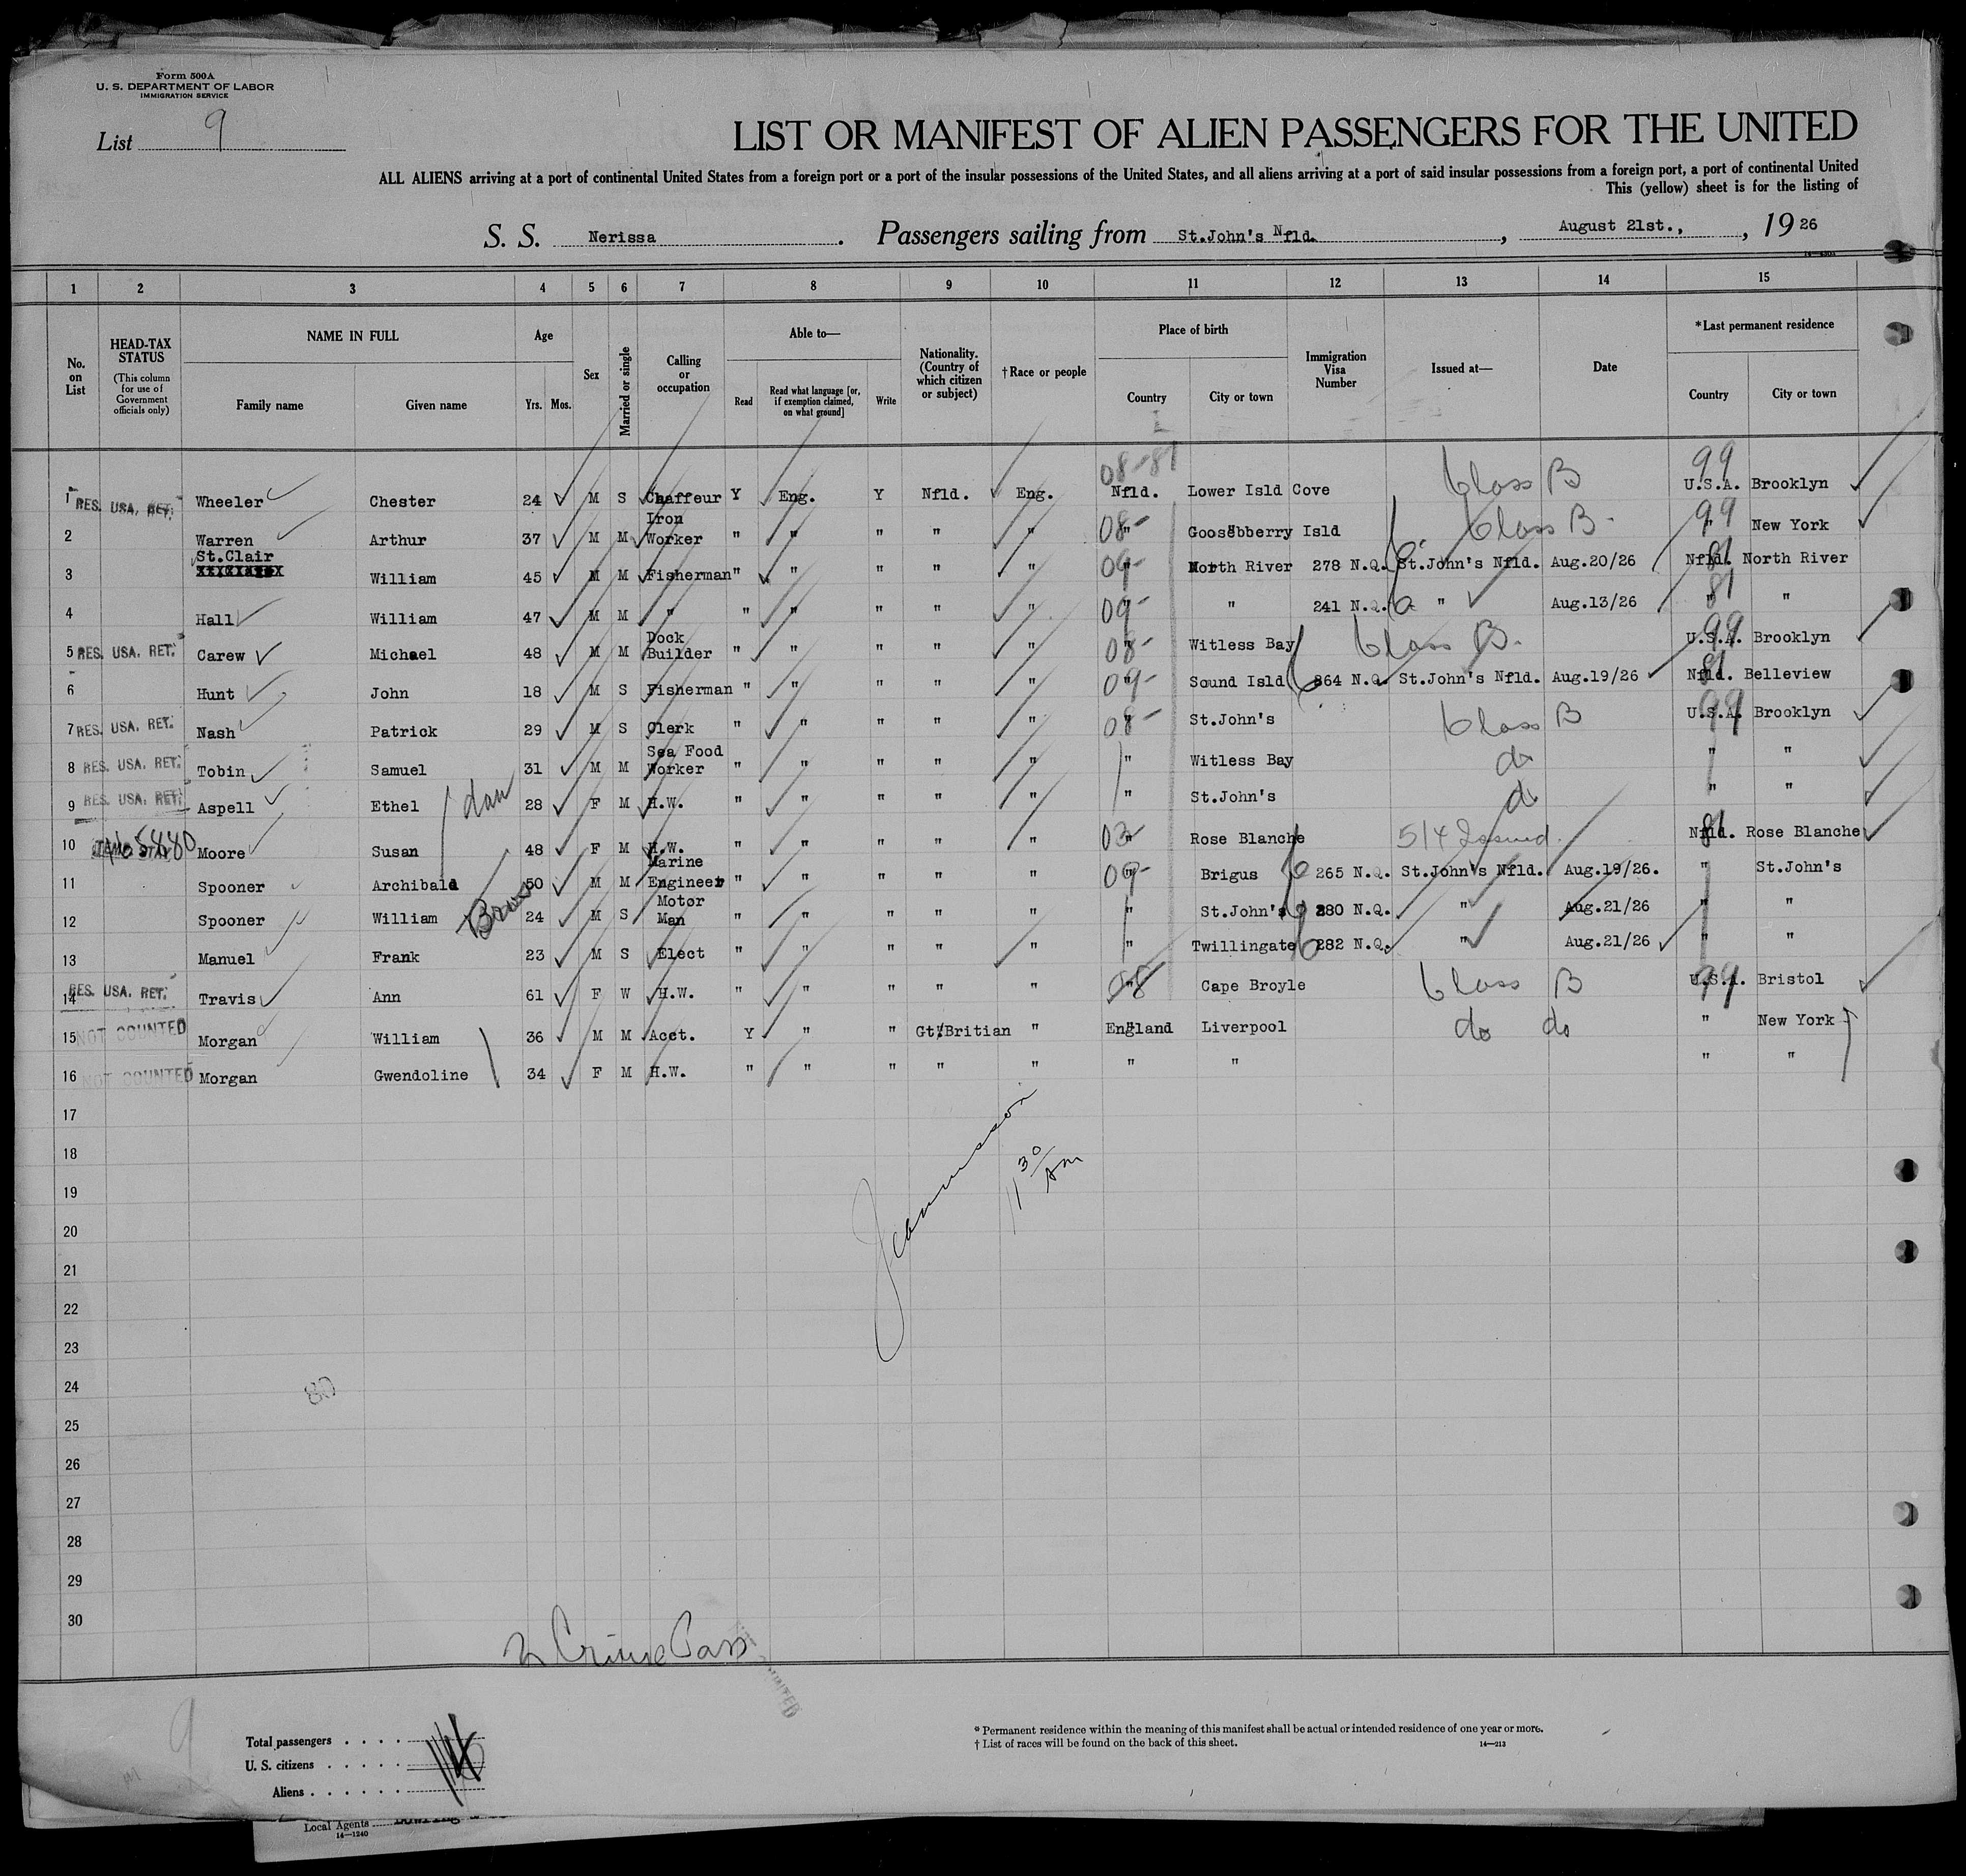 Form 500A
U. S. DEPARTMENT OF LABOR
IMMIGRATION SERVICE
List 9
LIST OR MANIFEST OF ALIEN PASSENGERS FOR THE UNITED
ALL ALIENS arriving at a port of continental United States from a foreign port or a port of the insular possessions of the United States, and all aliens arriving at a port of said insular possessions from a foreign port, a port of continental United
This (yellow) sheet is for the listing of
S. S. Nerissa. Passengers sailing from St.John's Nfld., August 21st.,, 1926
1 2 3 4 5 6 7 8 9 10 11 12 13 14 15
No. on List
HEAD-TAX STATUS
(This column for use of Government officials only)
NAME IN FULL
Family name
Given name
Age
Yrs. Mos.
Sex
Married or single
Calling or occupation
Able to—
Read
Read what language [or, if exemption claimed, on what ground]
Write
Nationality. (Country of which citizen or subject)
†Race or people
Place of birth
Country
City or town
Immigration Visa Number
Issued at—
Date
*Last permanent residence
Country
City or town
08-81 99
1 RES. USA. RET. Wheeler Chester 24 M S Chaffeur Y Eng. Y Nfld. Eng. Nfld. Lower Isld Cove Class B U.S.A. Brooklyn
2 Warren Arthur 37 M M Iron Worker " " " " " 08- " Goosebberry Isld Class B 99 " New York
3 St.Clair William 45 M M Fisherman " " " " " 09- " North River 278 N.Q. St.John's Nfld. Aug.20/26 81 Nfld. North River
4 Hall William 47 M M " " " " " " 09- " " 241 N.Q. " Aug.13/26 81 " "
5 RES. USA. RET. Carew Michael 48 M M Dock Builder " " " " " 08- " Witless Bay Class B. 99 U.S.A. Brooklyn
6 Hunt John 18 M S Fisherman " " " " " 09- " Sound Isld 264 N.Q. St.John's Nfld. Aug.19/26 81 Nfld. Belleview
7 RES. USA. RET. Nash Patrick 29 M S Clerk " " " " " 08- " St.John's Class B 99 U.S.A. Brooklyn
8 RES. USA. RET. Tobin Samuel 31 M M Sea Food Worker " " " " " " Witless Bay do " "
9 RES. USA. RET. Aspell Ethel dau 28 F M H.W. " " " " " " St.John's do " "
10 TEMP STAY Moore Susan 48 F M H.W. " " " " " 03 " Rose Blanche 514 Issued 81 Nfld. Rose Blanche
11 Spooner Archibald 50 M M Marine Engineer " " " " " 09- " Brigus 265 N.Q. St.John's Nfld. Aug.19/26. " St.John's
12 Spooner William 24 M S Motor Man " " " " " " St.John's 280 N.Q. " Aug.21/26 " "
13 Manuel Frank 23 M S Elect " " " " " " Twillingate 282 N.Q. " Aug.21/26 " "
14 RES. USA. RET. Travis Ann 61 F W H.W. " " " " " 08 " Cape Broyle Class B 99 U.S.A. Bristol
15 NOT COUNTED Morgan William 36 M M Acct. Y " " Gt/Britian " England Liverpool do do " New York
16 NOT COUNTED Morgan Gwendoline 34 F M H.W. " " " " " " " " "
17
18
11 30 AM
19
20
21
22
23
24
80
25
26
27
28
29
30
2 Cruise Pass
9
Total passengers . . . .
U. S. citizens . . . . .
Aliens . . . . . .
* Permanent residence within the meaning of this manifest shall be actual or intended residence of one year or more.
† List of races will be found on the back of this sheet.
14—213
Local Agents
14—1240